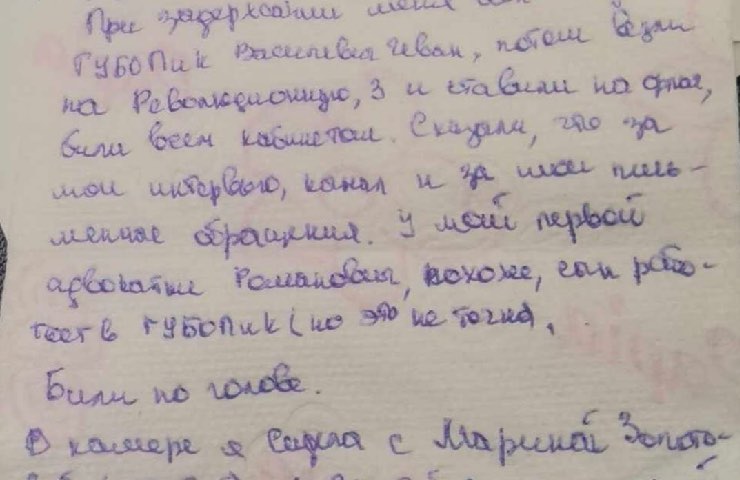 При задержании меня бил
ГУБОПиК Василевич Иван, потом везли
на Революционную, 3 и ставили на флаг,
били всем кабинетом. Сказали, что за
мои интервью, канал и за мои пись-
менные обращения. У моей первой
адвокатки Романовны, похоже, сын рабо-
тает в ГУБОПиК (но это не точно),
Били по голове.
В камере я сидела с Мариной Золото-